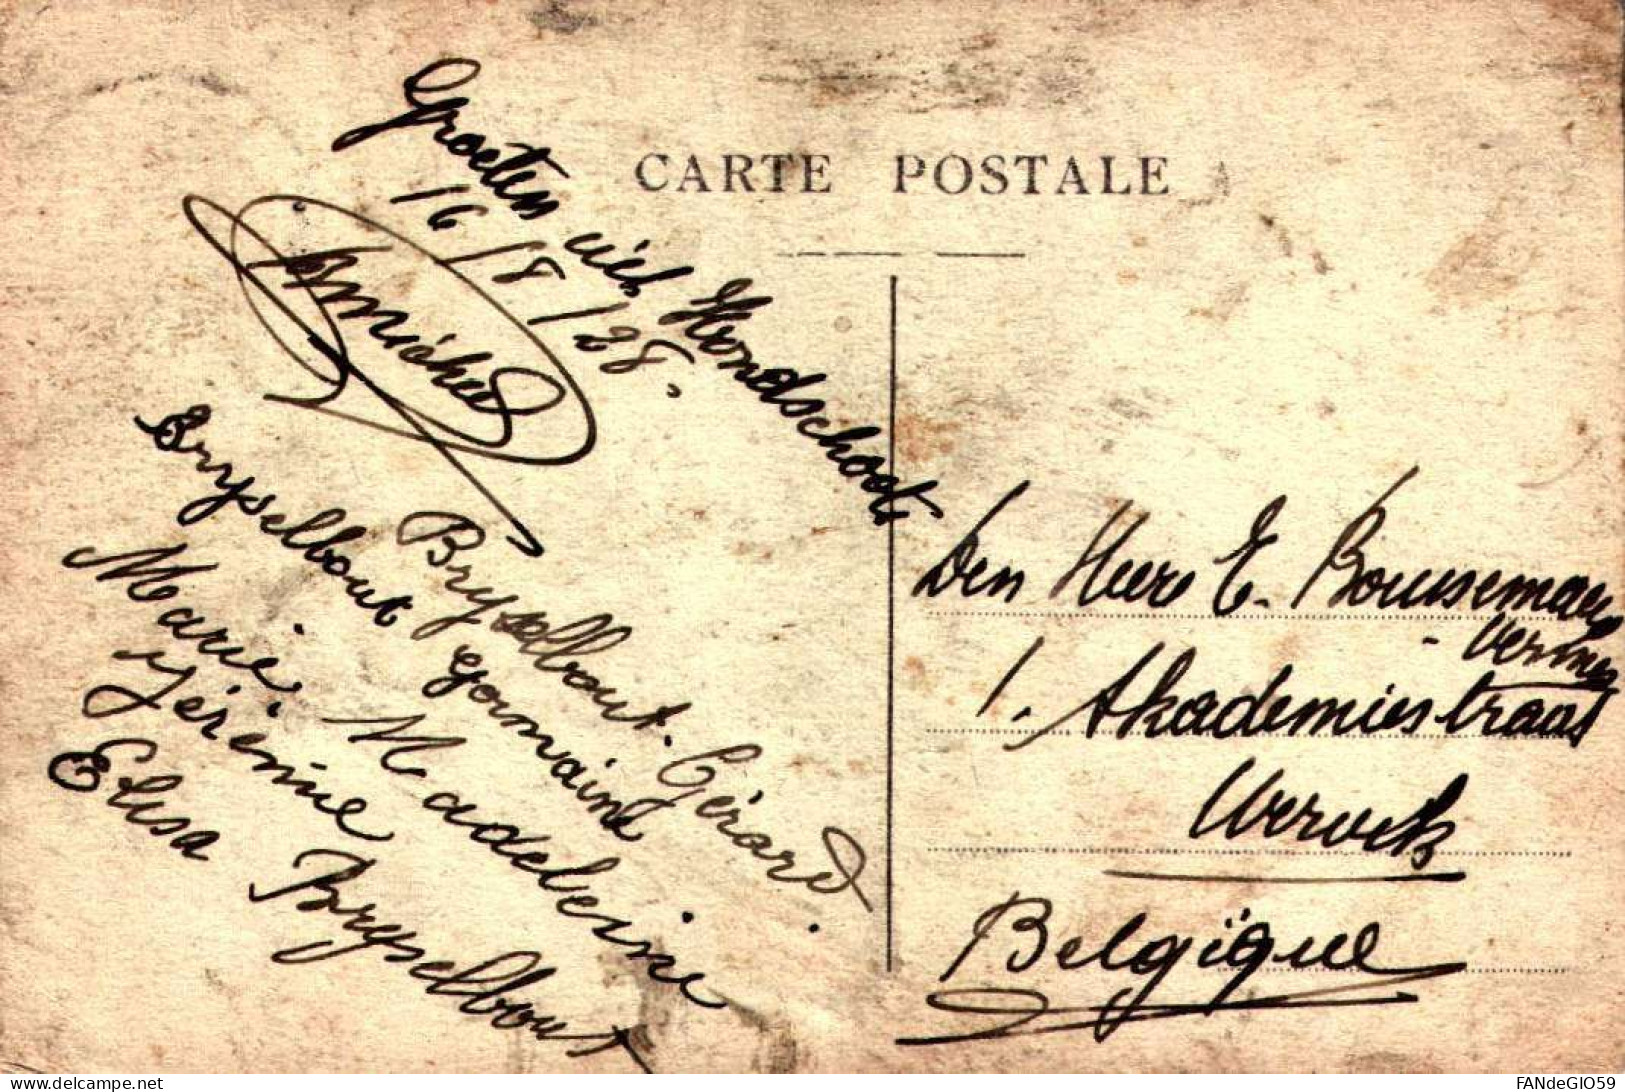 CARTE POSTALE
Groeten uit Hondschoote
16/8/28.
Bryselbout. Gérard.
Bryselbout Germaine
Marie. Madeleine
Jérémie
Elisa Bryselbout
Den Heere E. Bouseman
- Vermes
1. Akademiestraat
Wervick
Belgïque
delcampe.net
FANdeGIO59